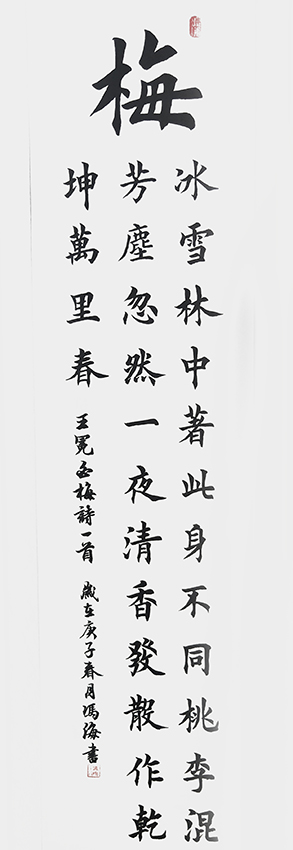 梅
冰雪林中著此身不同桃李混
芳塵忽然一夜清香發散作乾
坤萬里春
王冕白梅詩一首 歲在庚子春月馮海書